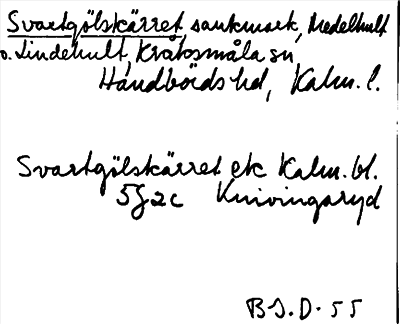 Svartgölskärret, sankmark, Medelhult
o. Lindehult, Kråksmåla sn,
Handbörds hd, Kalm. l.
Svartgölskärret ek Kalm. bl.
5G2c Knivingaryd
B J. D. 55